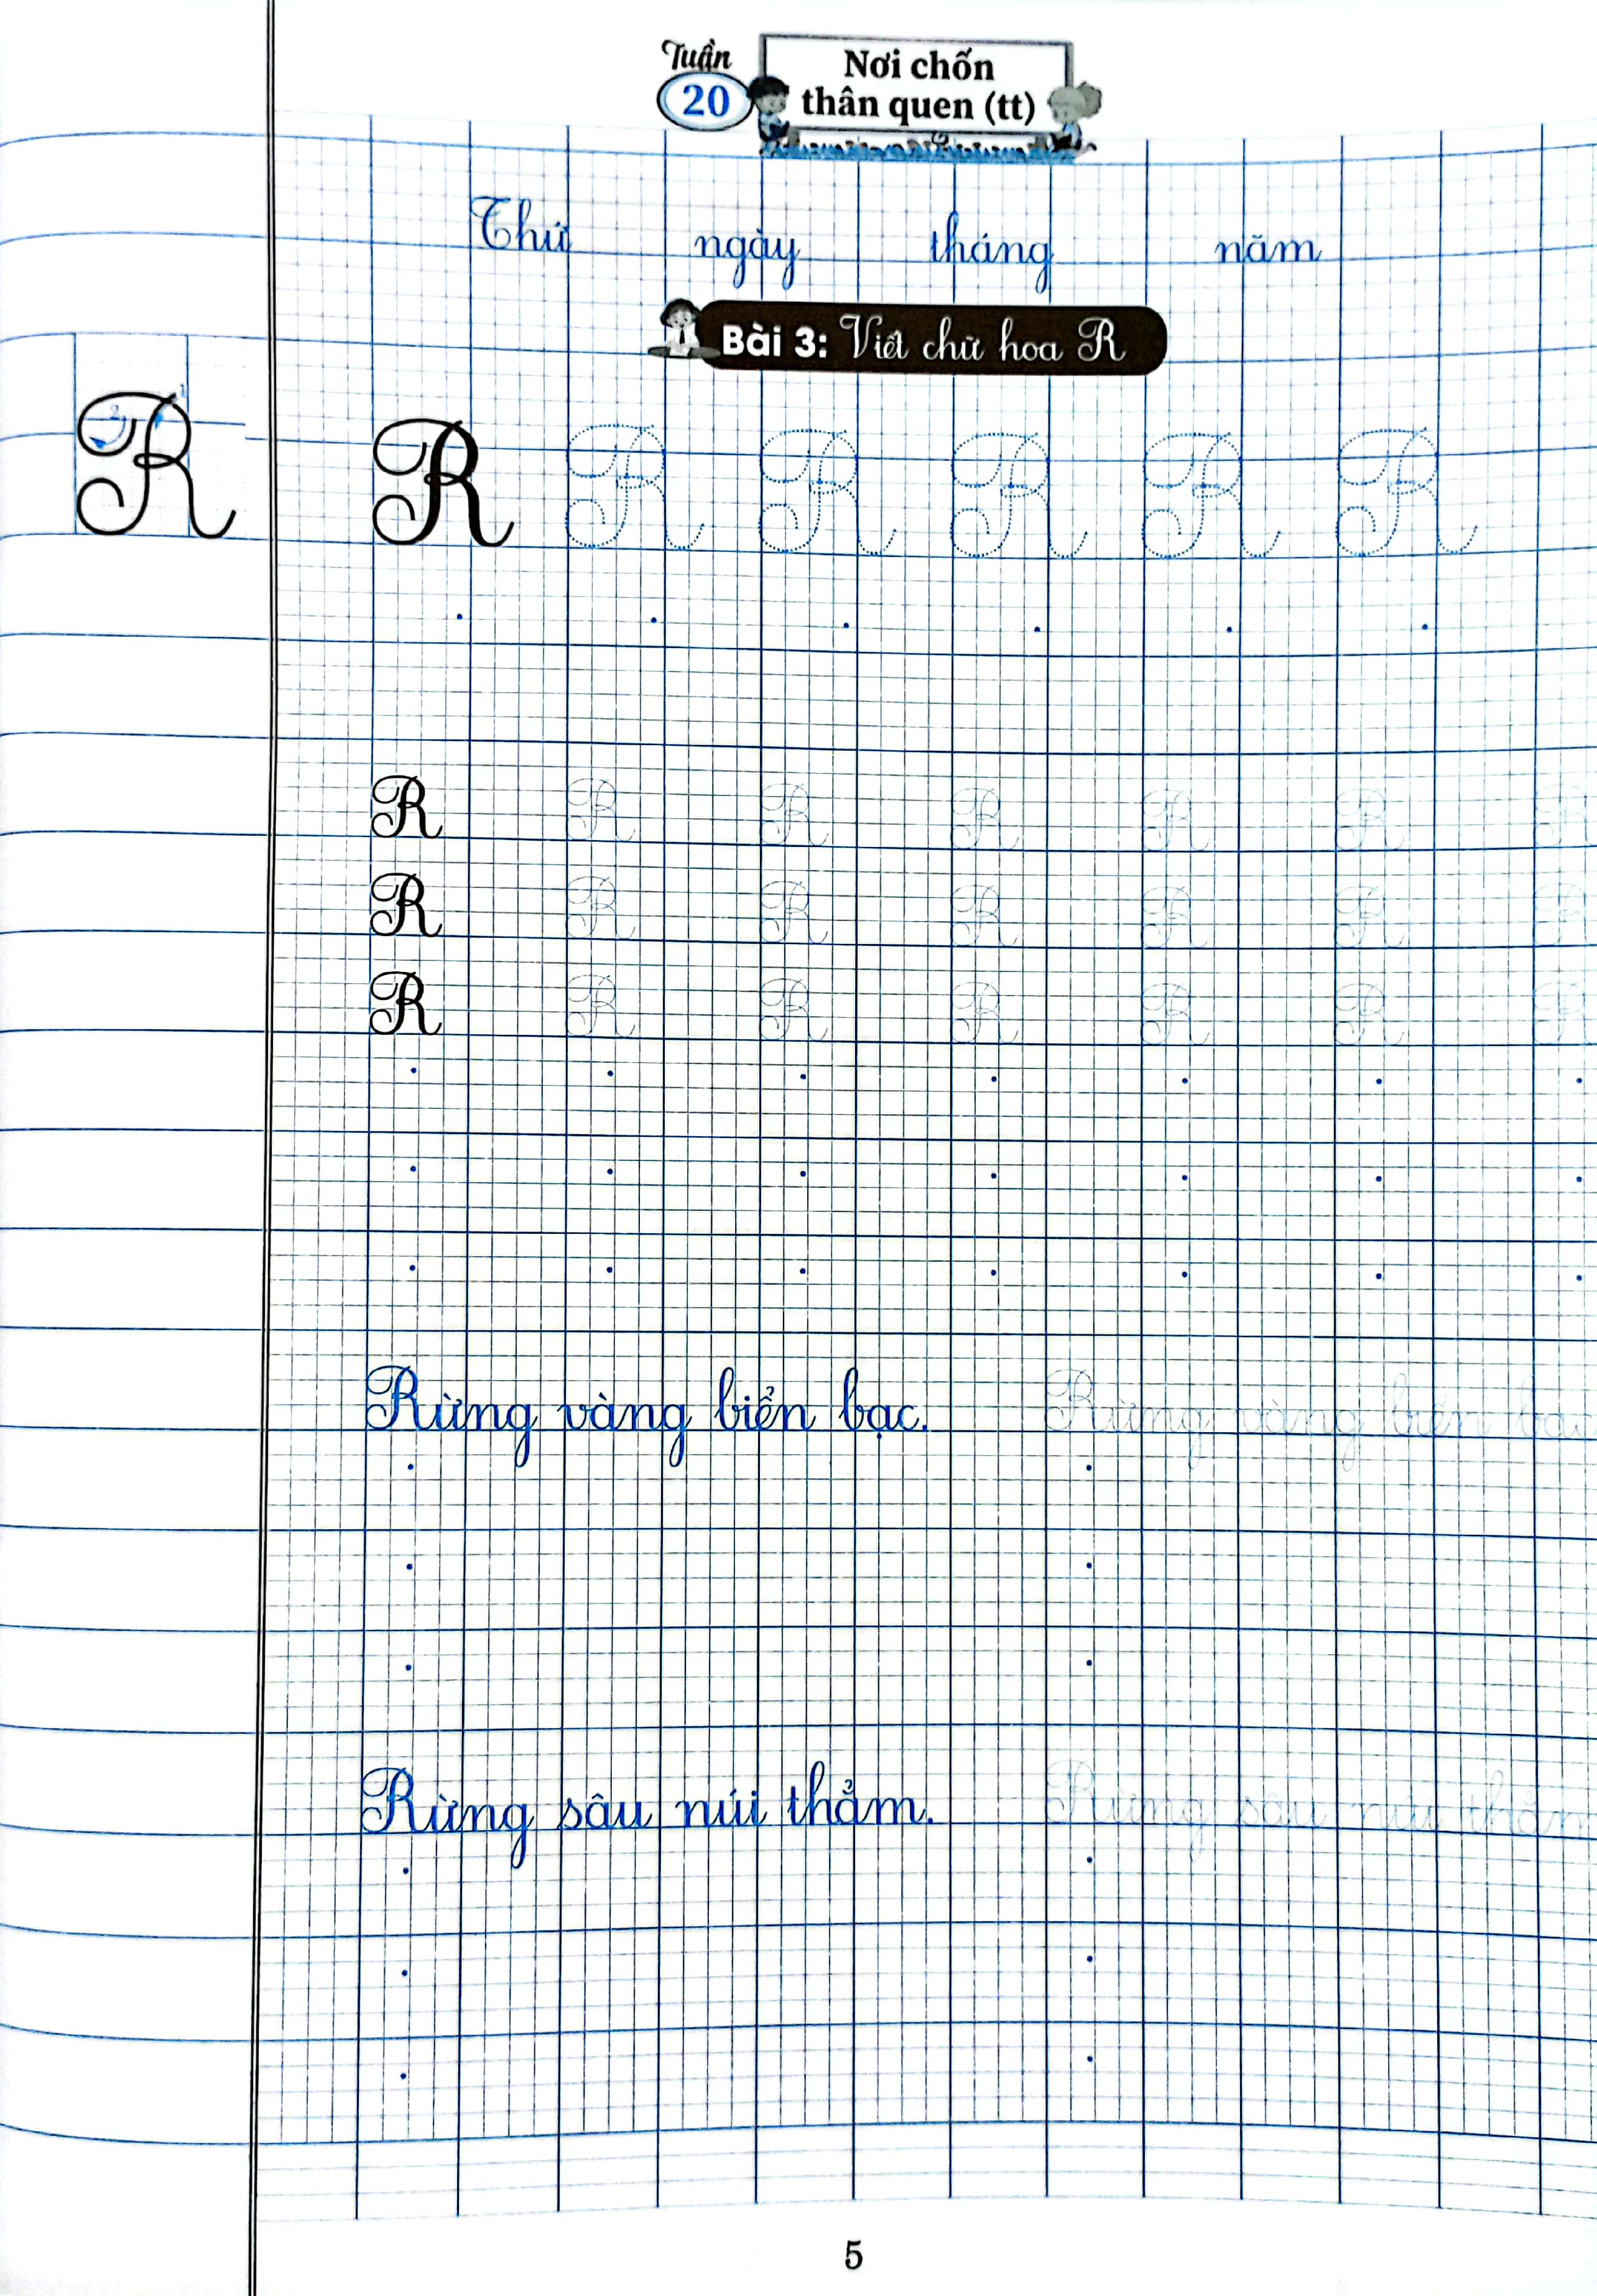 Tuần
20
Nơi chốn
thân quen (tt)
Thứ ngày tháng năm
Bài 3: Viết chữ hoa R
1
2
R R R R R R R
R R R R R R R
R R R R R R R
R R R R R R R
Rừng vàng biển bạc. Rừng vàng biển bạc
Rừng sâu núi thẳm. Rừng sâu núi thẳm
5